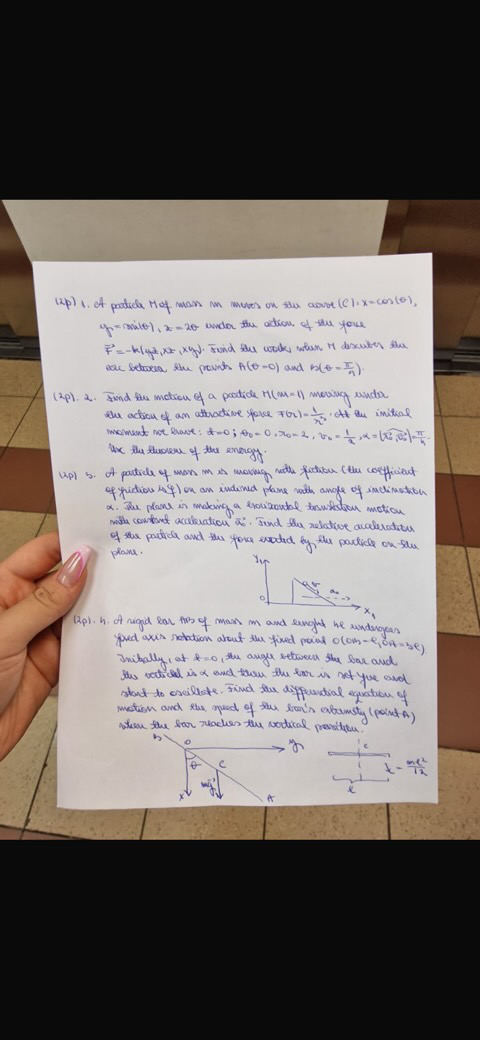 (2p) 1. A particle M of mass m moves on the curve (C): x=cos(θ),
y=sin(θ), z=2θ under the action of the force
F⃗=-k(yz, xz, xy). Find the work, when M describes the
arc between the points A(θ=0) and B(θ=π/4).
(2p). 2. Find the motion of a particle M(m=1) moving under
the action of an attractive force F(r)=1/r³. At the initial
moment we have: t=0; θ₀=0, r₀=2, v₀=1/2, α=(r⃗₀,v⃗₀)=π/4.
Use the theorem of the energy.
(2p) 3. A particle of mass m is moving with friction (the coefficient
of friction is f) on an inclined plane with angle of inclination
α. The plane is making a horizontal translation motion
with constant acceleration a⃗₀. Find the relative acceleration
of the particle and the force exerted by the particle on the
plane.
y₁
a₀
O
x₁
(2p). 4. A rigid bar AB of mass m and lenght 4l undergoes
fixed axis rotation about the fixed point O (OB=l, OA=3l)
Initially, at t=0, the angle between the bar and
the vertical is α and then the bar is set free and
start to oscillate. Find the differential equation of
motion and the speed of the bar's extremity (point A)
when the bar reaches the vertical position.
B
O
y
θ
C
mg⃗
x
A
C
l
= ml²/12